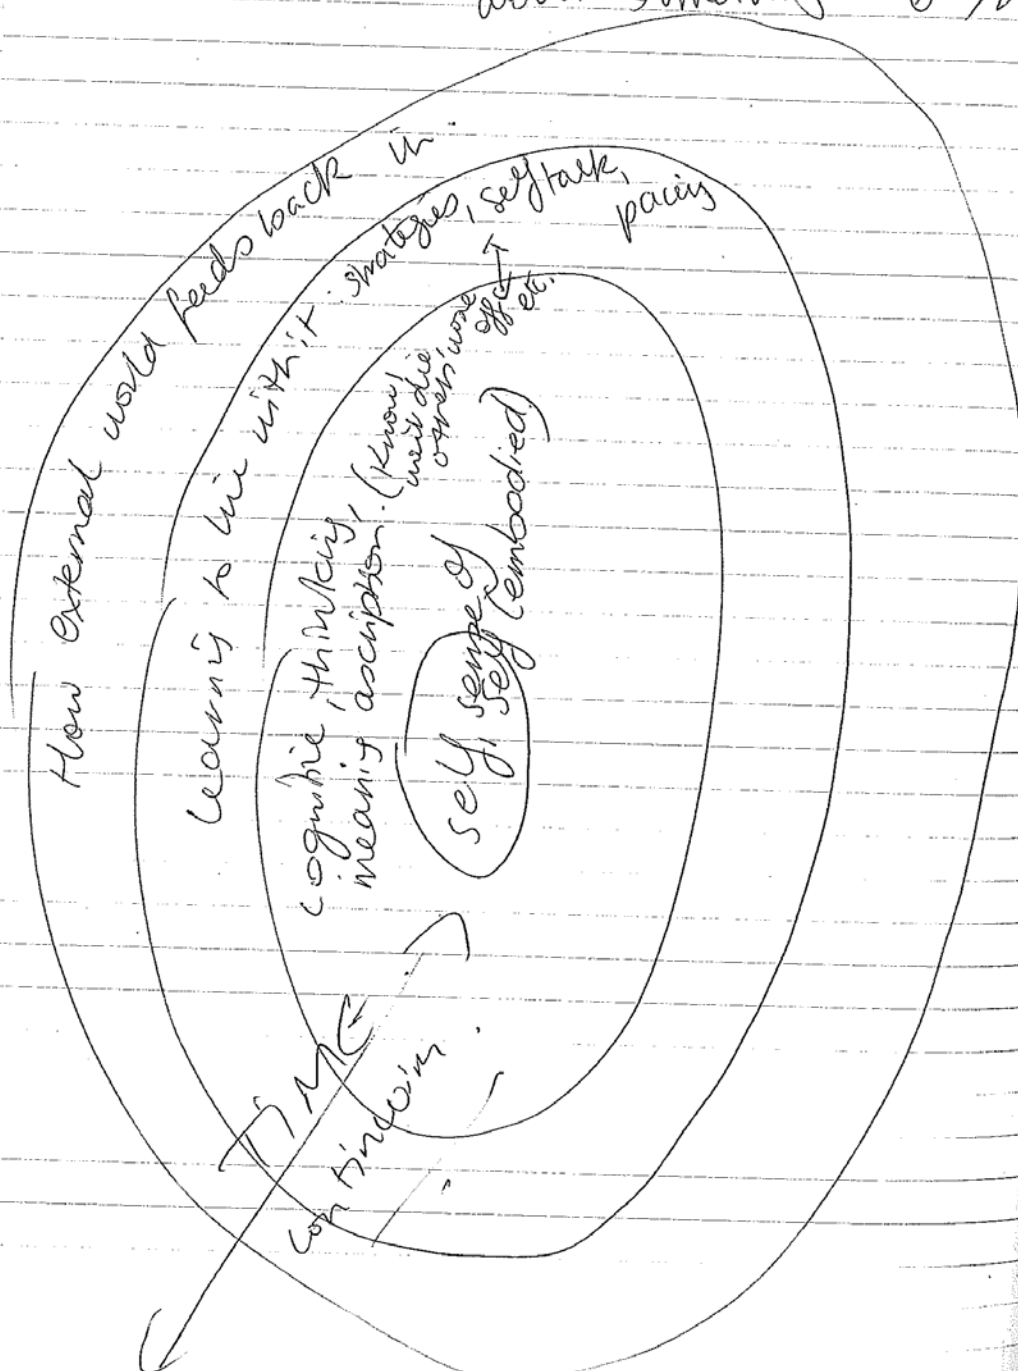 How external world feeds back in.
Learning to live with it. strategies, self talk,
pacing
cognitive, thinking,
meaning ascription. (Know
won't die,
others worse
off
etc.
self, sense of
self (embodied)
TIME
continuum.